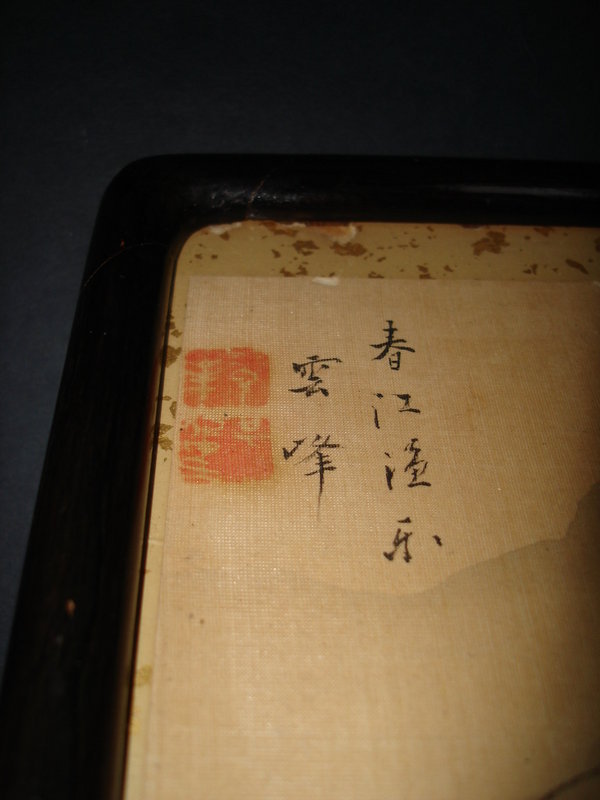 春江漁樂
雲峰